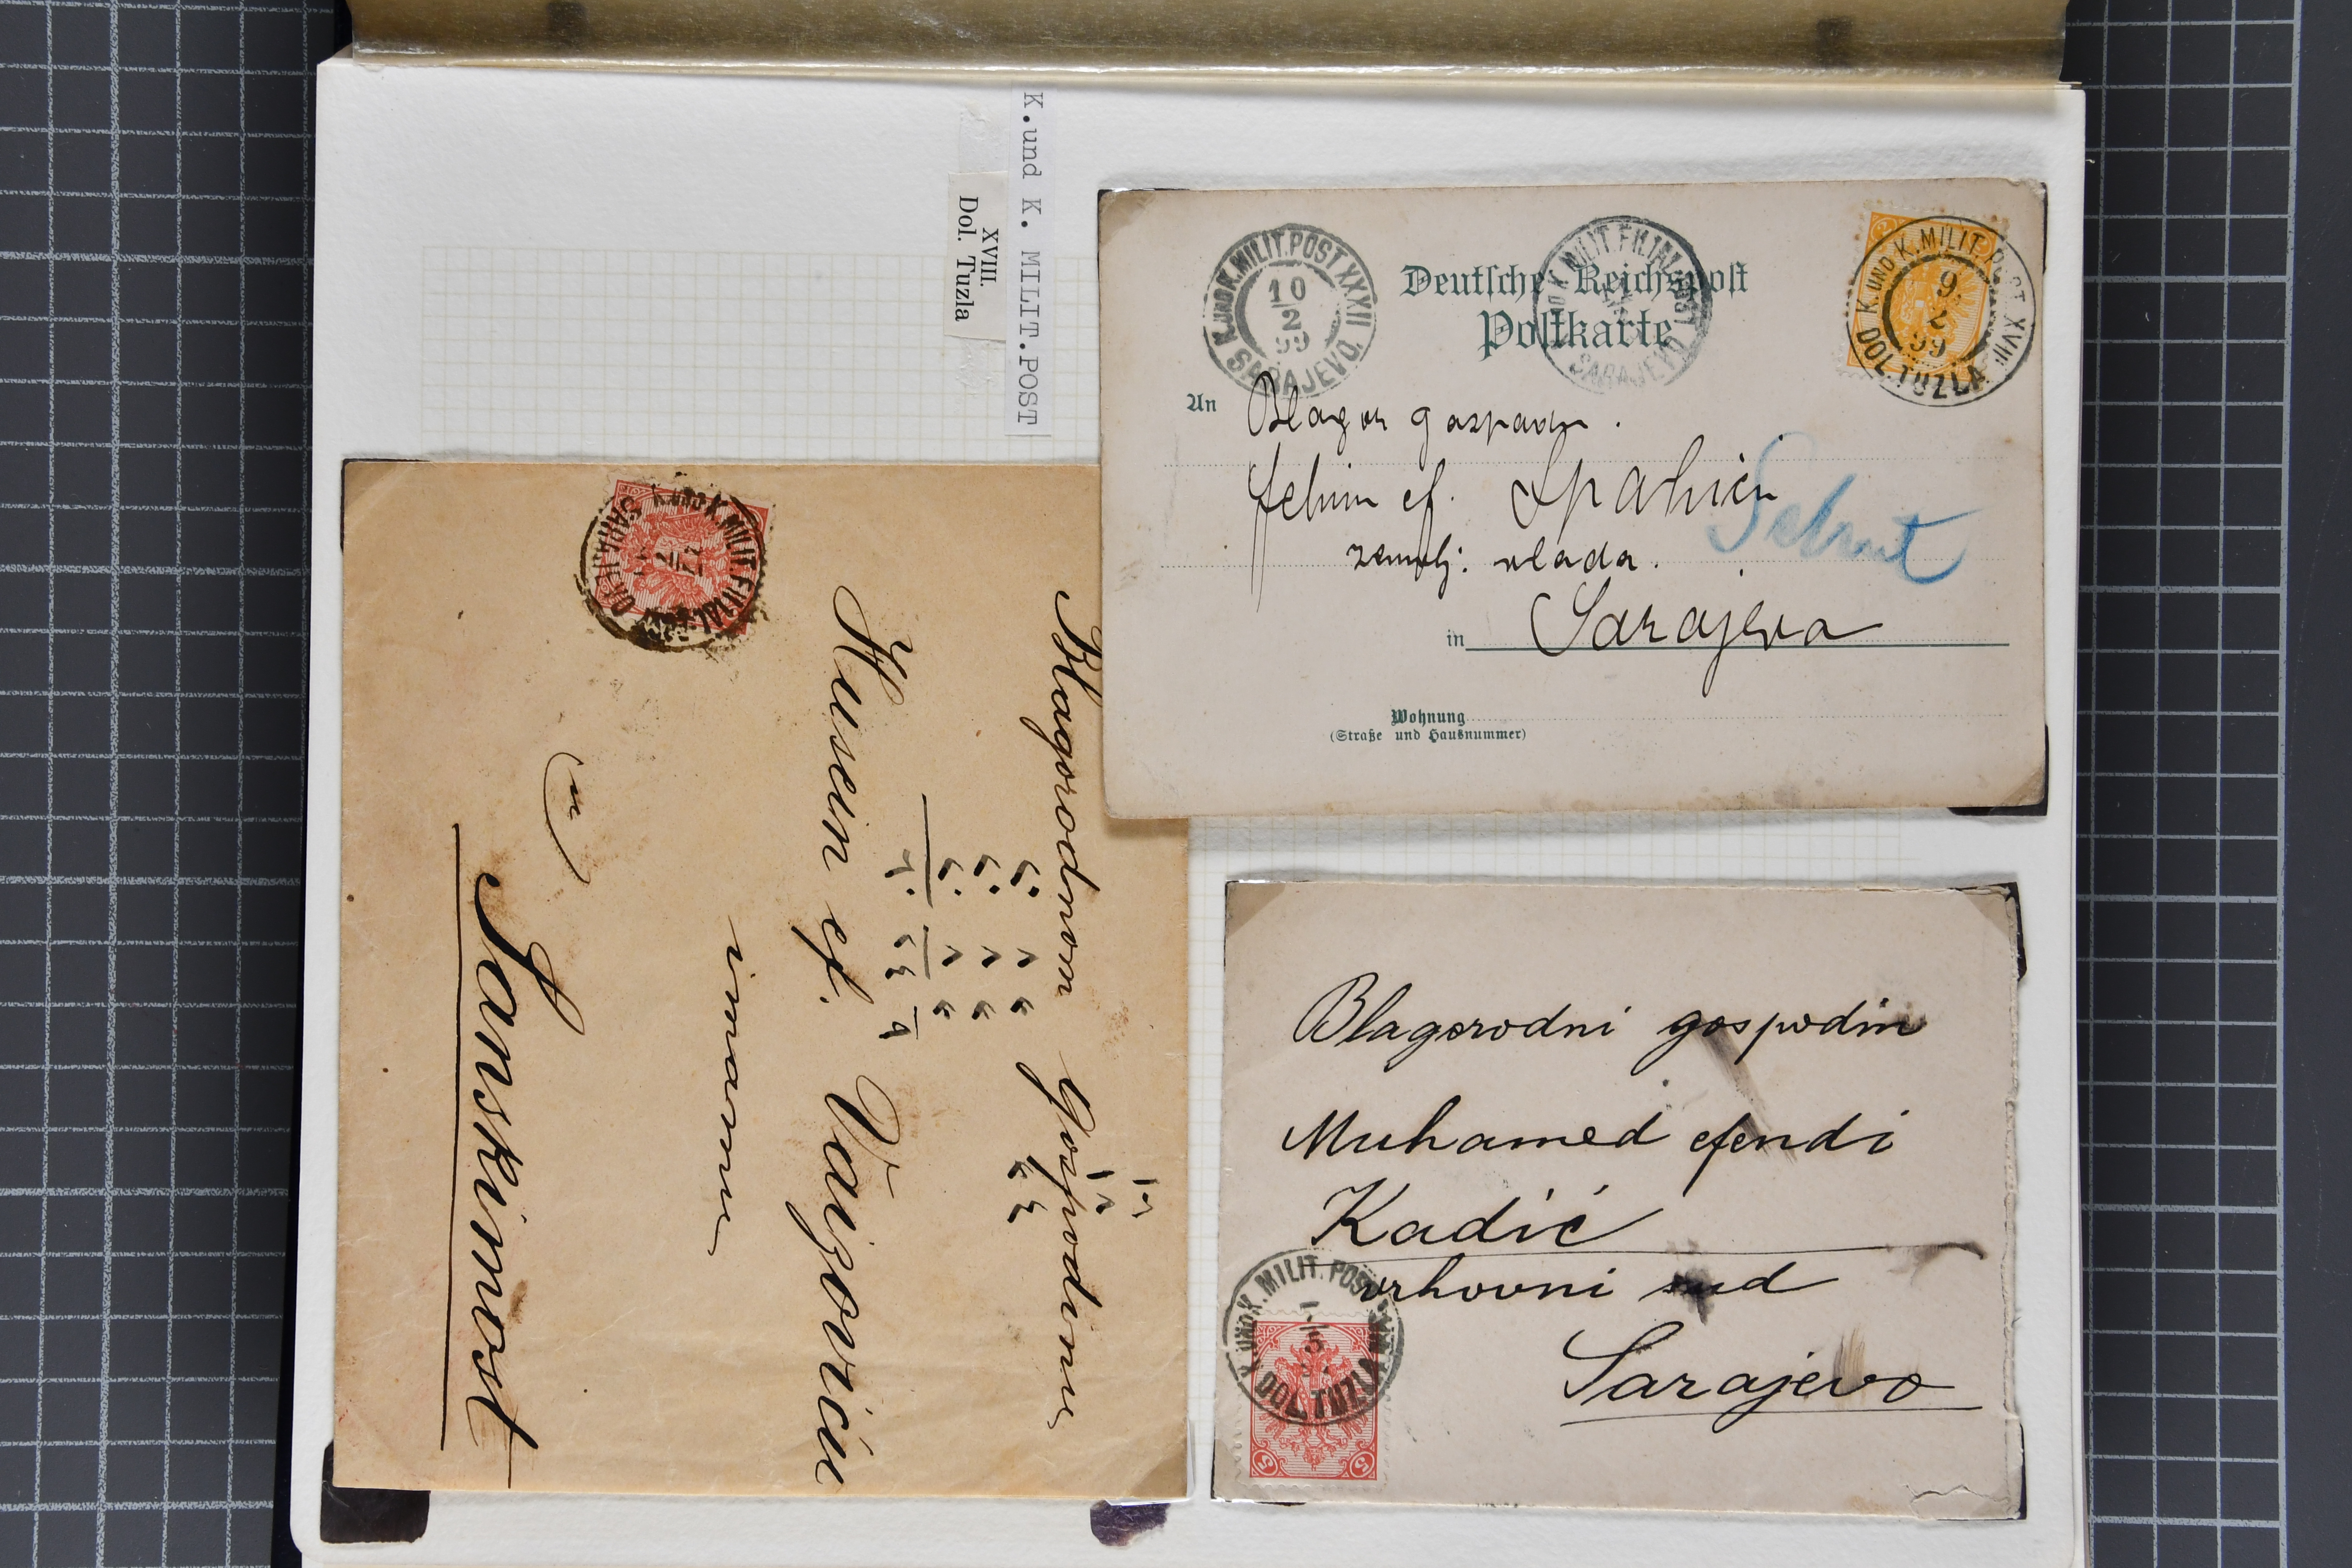 K.und K. MILIT.POST
XVIII.
Dol. Tuzla
K. UND K. MILIT. POST XXXII
10
2
99
SARAJEVO
Deutsche Reichspost
Postkarte
K. MILIT. FILIAL
SARAJEVO
K. UND K. MILIT. POST XVIII
9
2
99
DOL. TUZLA
An
Blagor gospodin
Fehim ef. Spahić
zemalj: vlada.
in Sarajevo
Wohnung
(Straße und Hausnummer)
Blagorodnom Gospodinu
Husein ef. Vaizoviću
imamu
u
Sanskimost
K. UND K. MILIT. FILIAL
SARAJEVO
Blagorodni gospodin
Muhamed efendi
Kadić
vrhovni sud
Sarajevo
K. UND K. MILIT. POST
5
DOL. TUZLA
5 5